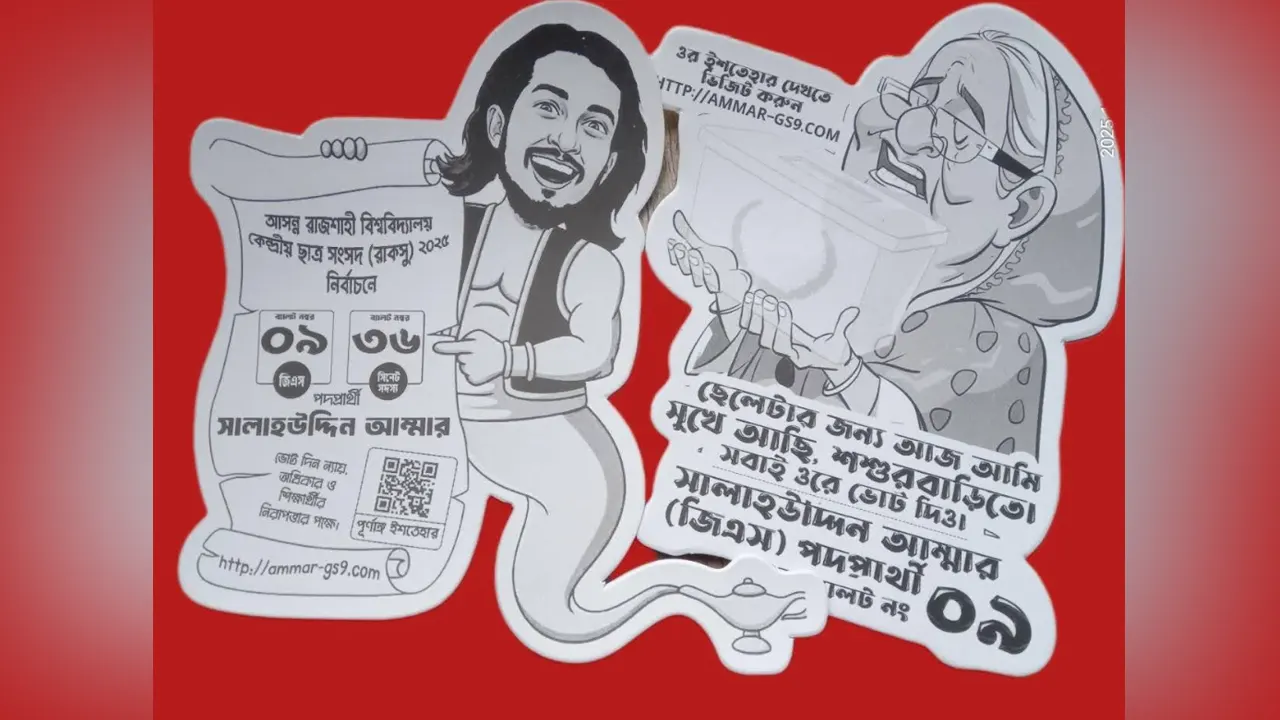 আসন্ন রাজশাহী বিশ্ববিদ্যালয়
কেন্দ্রীয় ছাত্র সংসদ (রাকসু) ২০২৫
নির্বাচনে
ব্যালট নম্বর
০৯
জিএস
ব্যালট নম্বর
৩৬
সিনেট
সদস্য
পদপ্রার্থী
সালাহউদ্দিন আম্মার
ভোট দিন ন্যায়,
অধিকার ও
শিক্ষার্থীর
নিরাপত্তার পক্ষে।
পূর্ণাঙ্গ ইশতেহার
http://ammar-gs9.com
ওর ইশতেহার দেখতে
ভিজিট করুন
HTTP://AMMAR-GS9.COM
2025
ছেলেটার জন্য আজ আমি
সুখে আছি, শশুরবাড়িতো
সবাই ওরে ভোট দিও।
সালাহউদ্দিন আম্মার
(জিএস) পদপ্রার্থী
নং ০৯